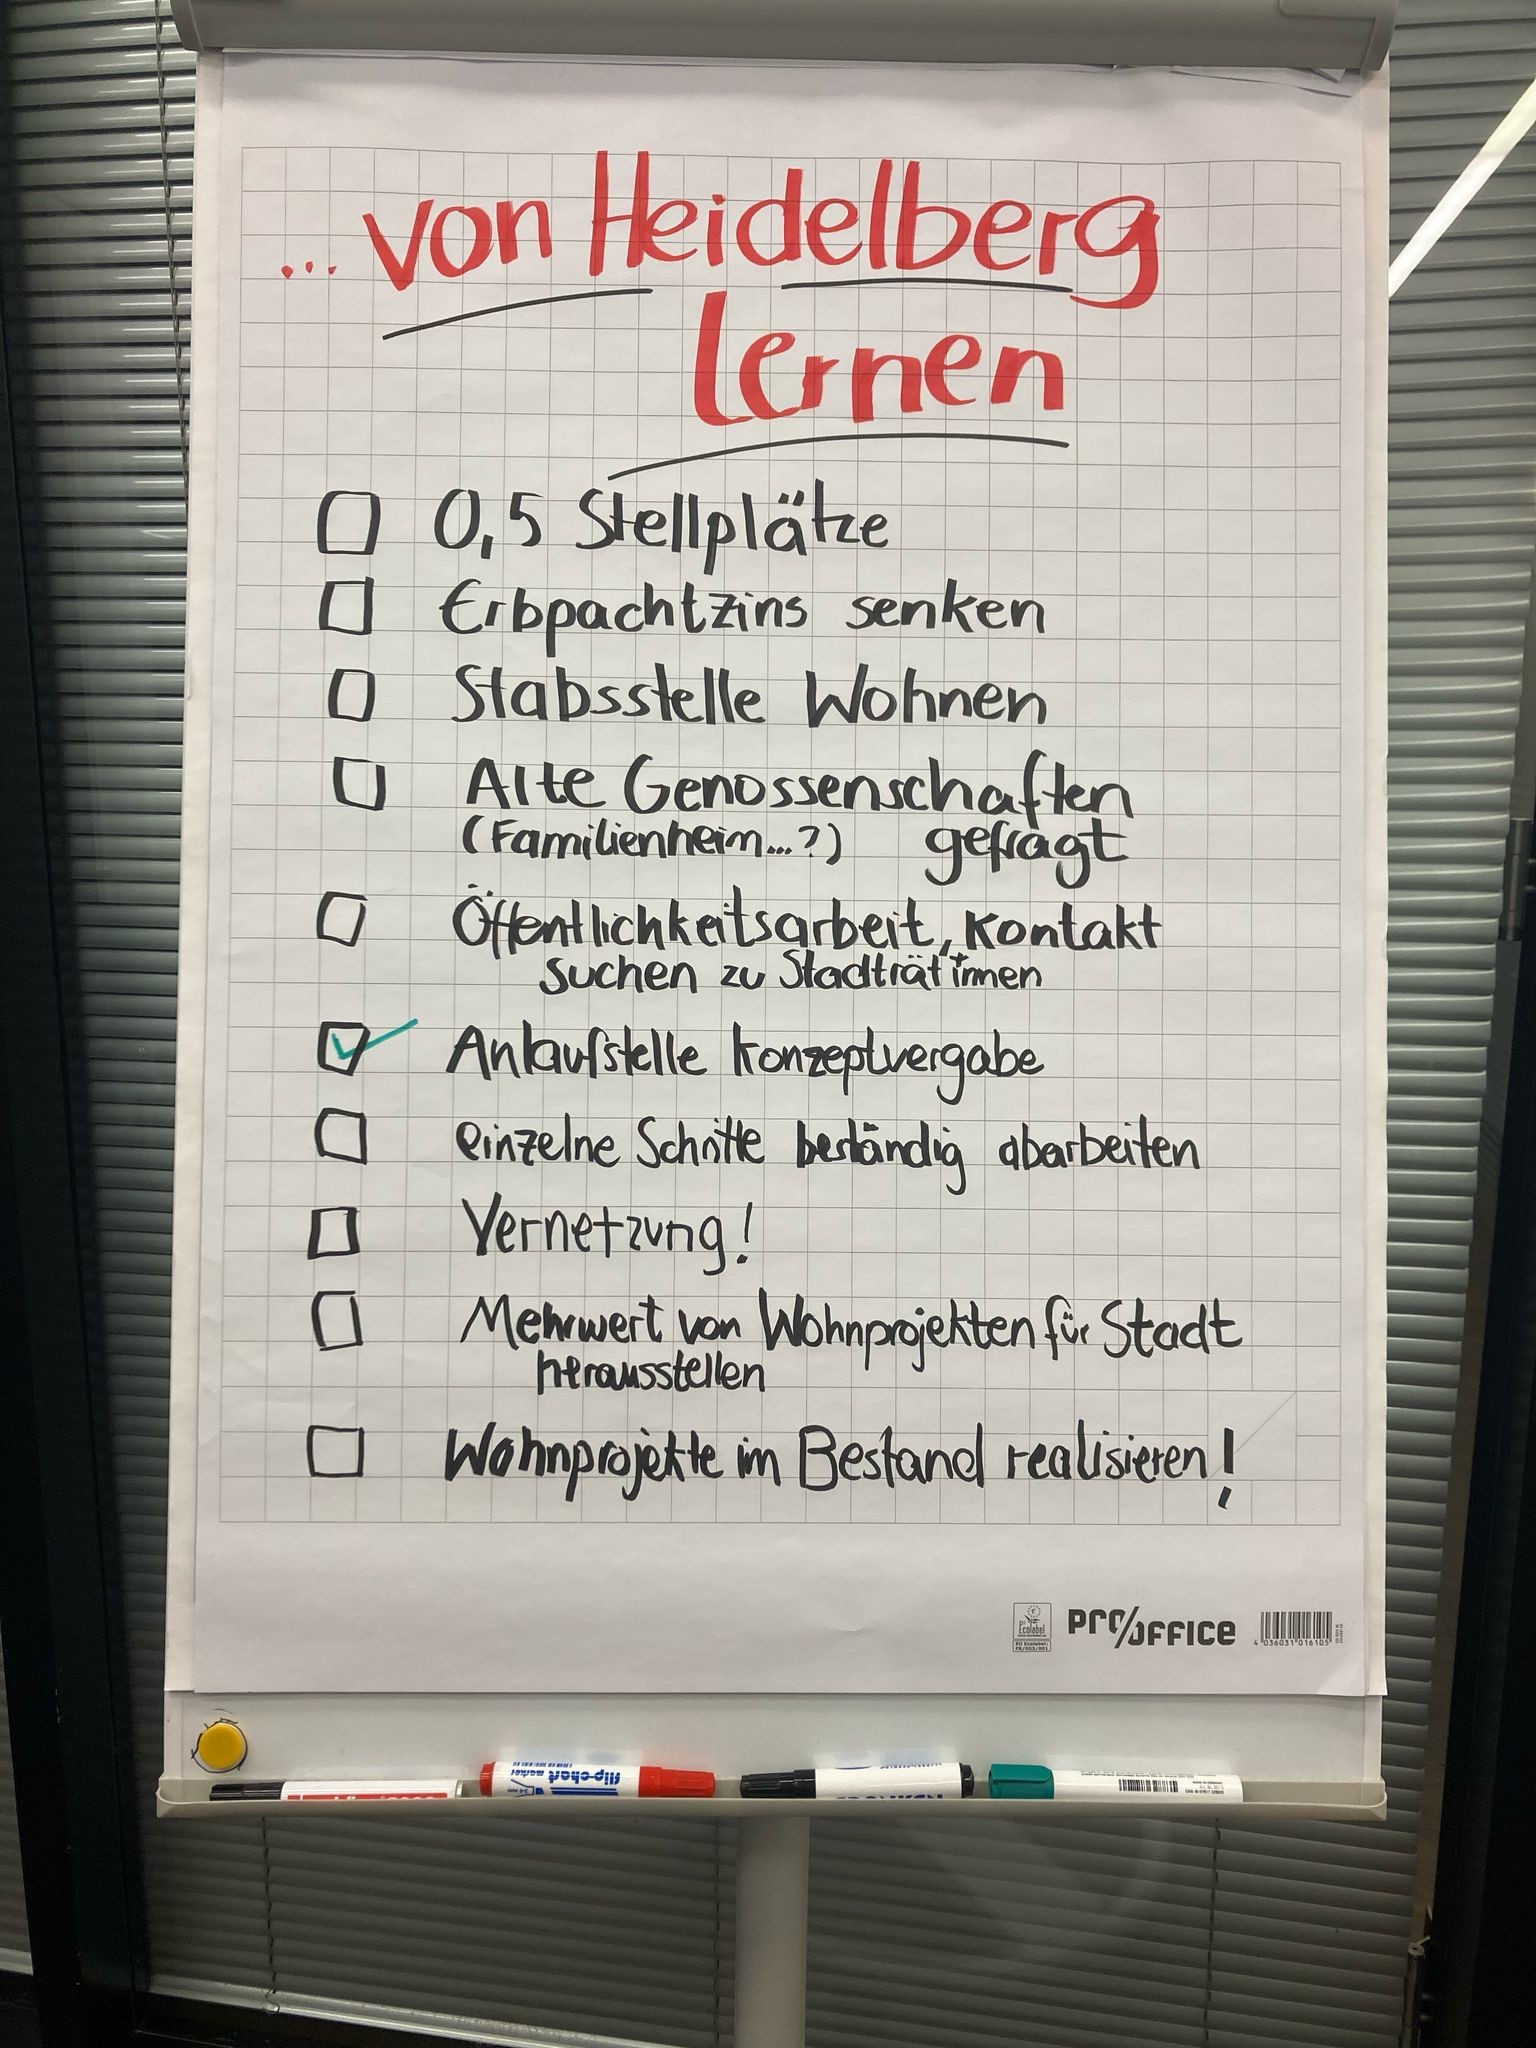 ... von Heidelberg
lernen
0,5 Stellplätze
Erbpachtzins senken
Stabsstelle Wohnen
Alte Genossenschaften
(Familienheim...?) gefragt
Öffentlichkeitsarbeit, Kontakt
suchen zu Stadträt*innen
Anlaufstelle Konzeptvergabe
einzelne Schritte beständig abarbeiten
Vernetzung!
Mehrwert von Wohnprojekten für Stadt
herausstellen
Wohnprojekte im Bestand realisieren!
Ecolabel
PRO/OFFICE
EU Ecolabel:
FR/053/001
4 036031 016105
flip-chart marker